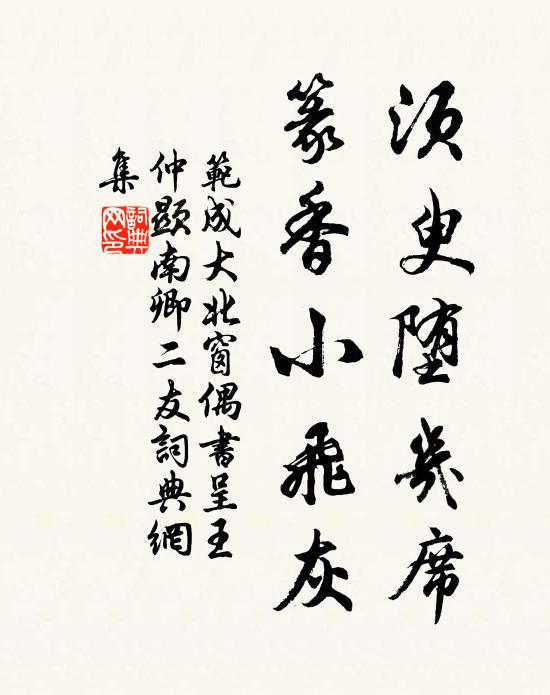 須臾堕幾席
篆香小飛灰
範成大北窗偶書呈王
仲顕南卿二友詞典網
集
詞典網印